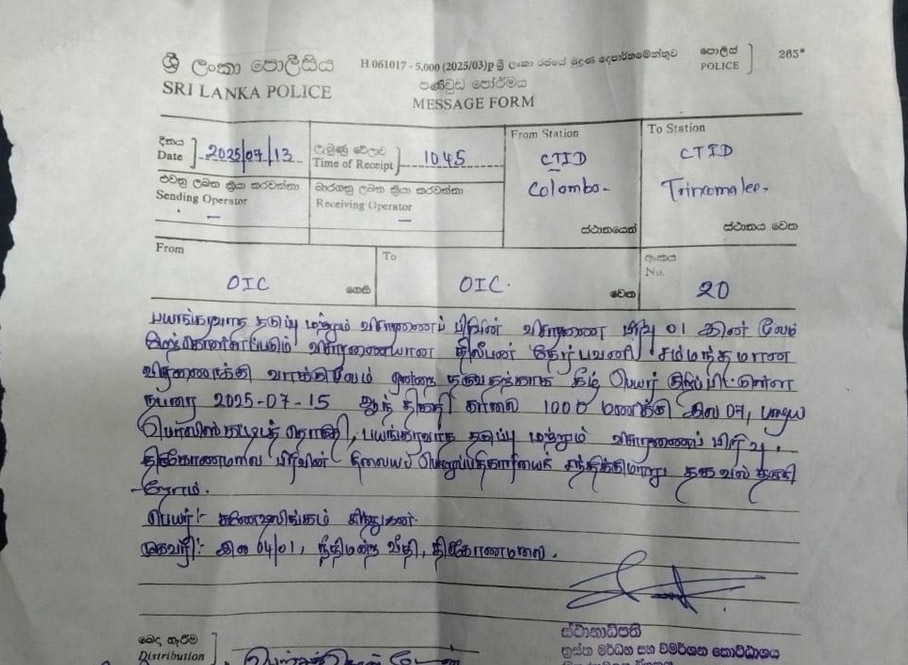 ශ්‍රී ලංකා පොලීසිය
SRI LANKA POLICE
H 061017 - 5,000 (2025/03)p ශ්‍රී ලංකා රජයේ මුද්‍රණ දෙපාර්තමේන්තුව
පණිවුඩ පෝර්මය
MESSAGE FORM
පොලිස්
POLICE
265*
දිනය
Date 2025/07/13
ලැබුණු වේලාව
Time of Receipt 1045
From Station
CTID
Colombo-
ස්ථානයෙන්
To Station
CTID
Trinxomalee-
ස්ථානය වෙත
එවනු ලබන ක්‍රියා කරවන්නා
Sending Operator
භාරගනු ලබන ක්‍රියා කරවන්නා
Receiving Operator
From
OIC
ගෙති
To
OIC.
වෙත
අංකය
No.
20
பயங்கரவாத தடுப்பு மற்றும் விசாரணைப் பிரிவின் விசாரணை பிரிவு 01 இன்
விசாரணையான திலீபன் தேர்பவனி சம்மந்தமான
வாக்குமூலம் ஒன்றை தருவதற்காக கீழ் பெயர் குறிப்பிட்டுள்ள
நபரை 2025-07-15 ஆந் திகதி காலை 1000 மணிக்கு இல 07, பழைய
பயங்கரவாத தடுப்பு மற்றும் விசாரணைப் பிரிவு,
திருகோணமலை பிரிவின் நிலையப் பொறுப்பதிகாரியைச் சந்திக்குமாறு தகவல் தருகி
றோம்.
பெயர்:-
முகவரி:- இல 04/01, நீதிமன்ற வீதி, திருகோணமலை.
ස්ථානාධිපති
ත්‍රස්ත මර්ධන සහ විමර්ශන කොට්ඨාශය
බෙදා හැරීම
Distribution